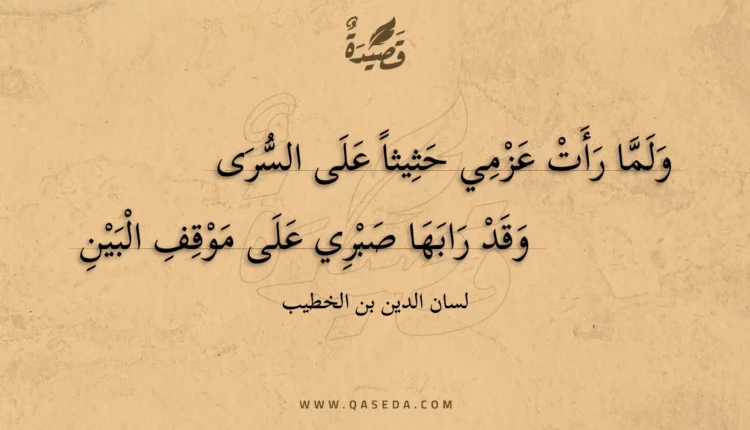 قَصِيْدَةٌ
وَلَمَّا رَأَتْ عَزْمِي حَثِيثاً عَلَى السُّرَى
وَقَدْ رَابَهَا صَبْرِي عَلَى مَوْقِفِ الْبَيْنِ
لسان الدين بن الخطيب
WWW.QASEDA.COM